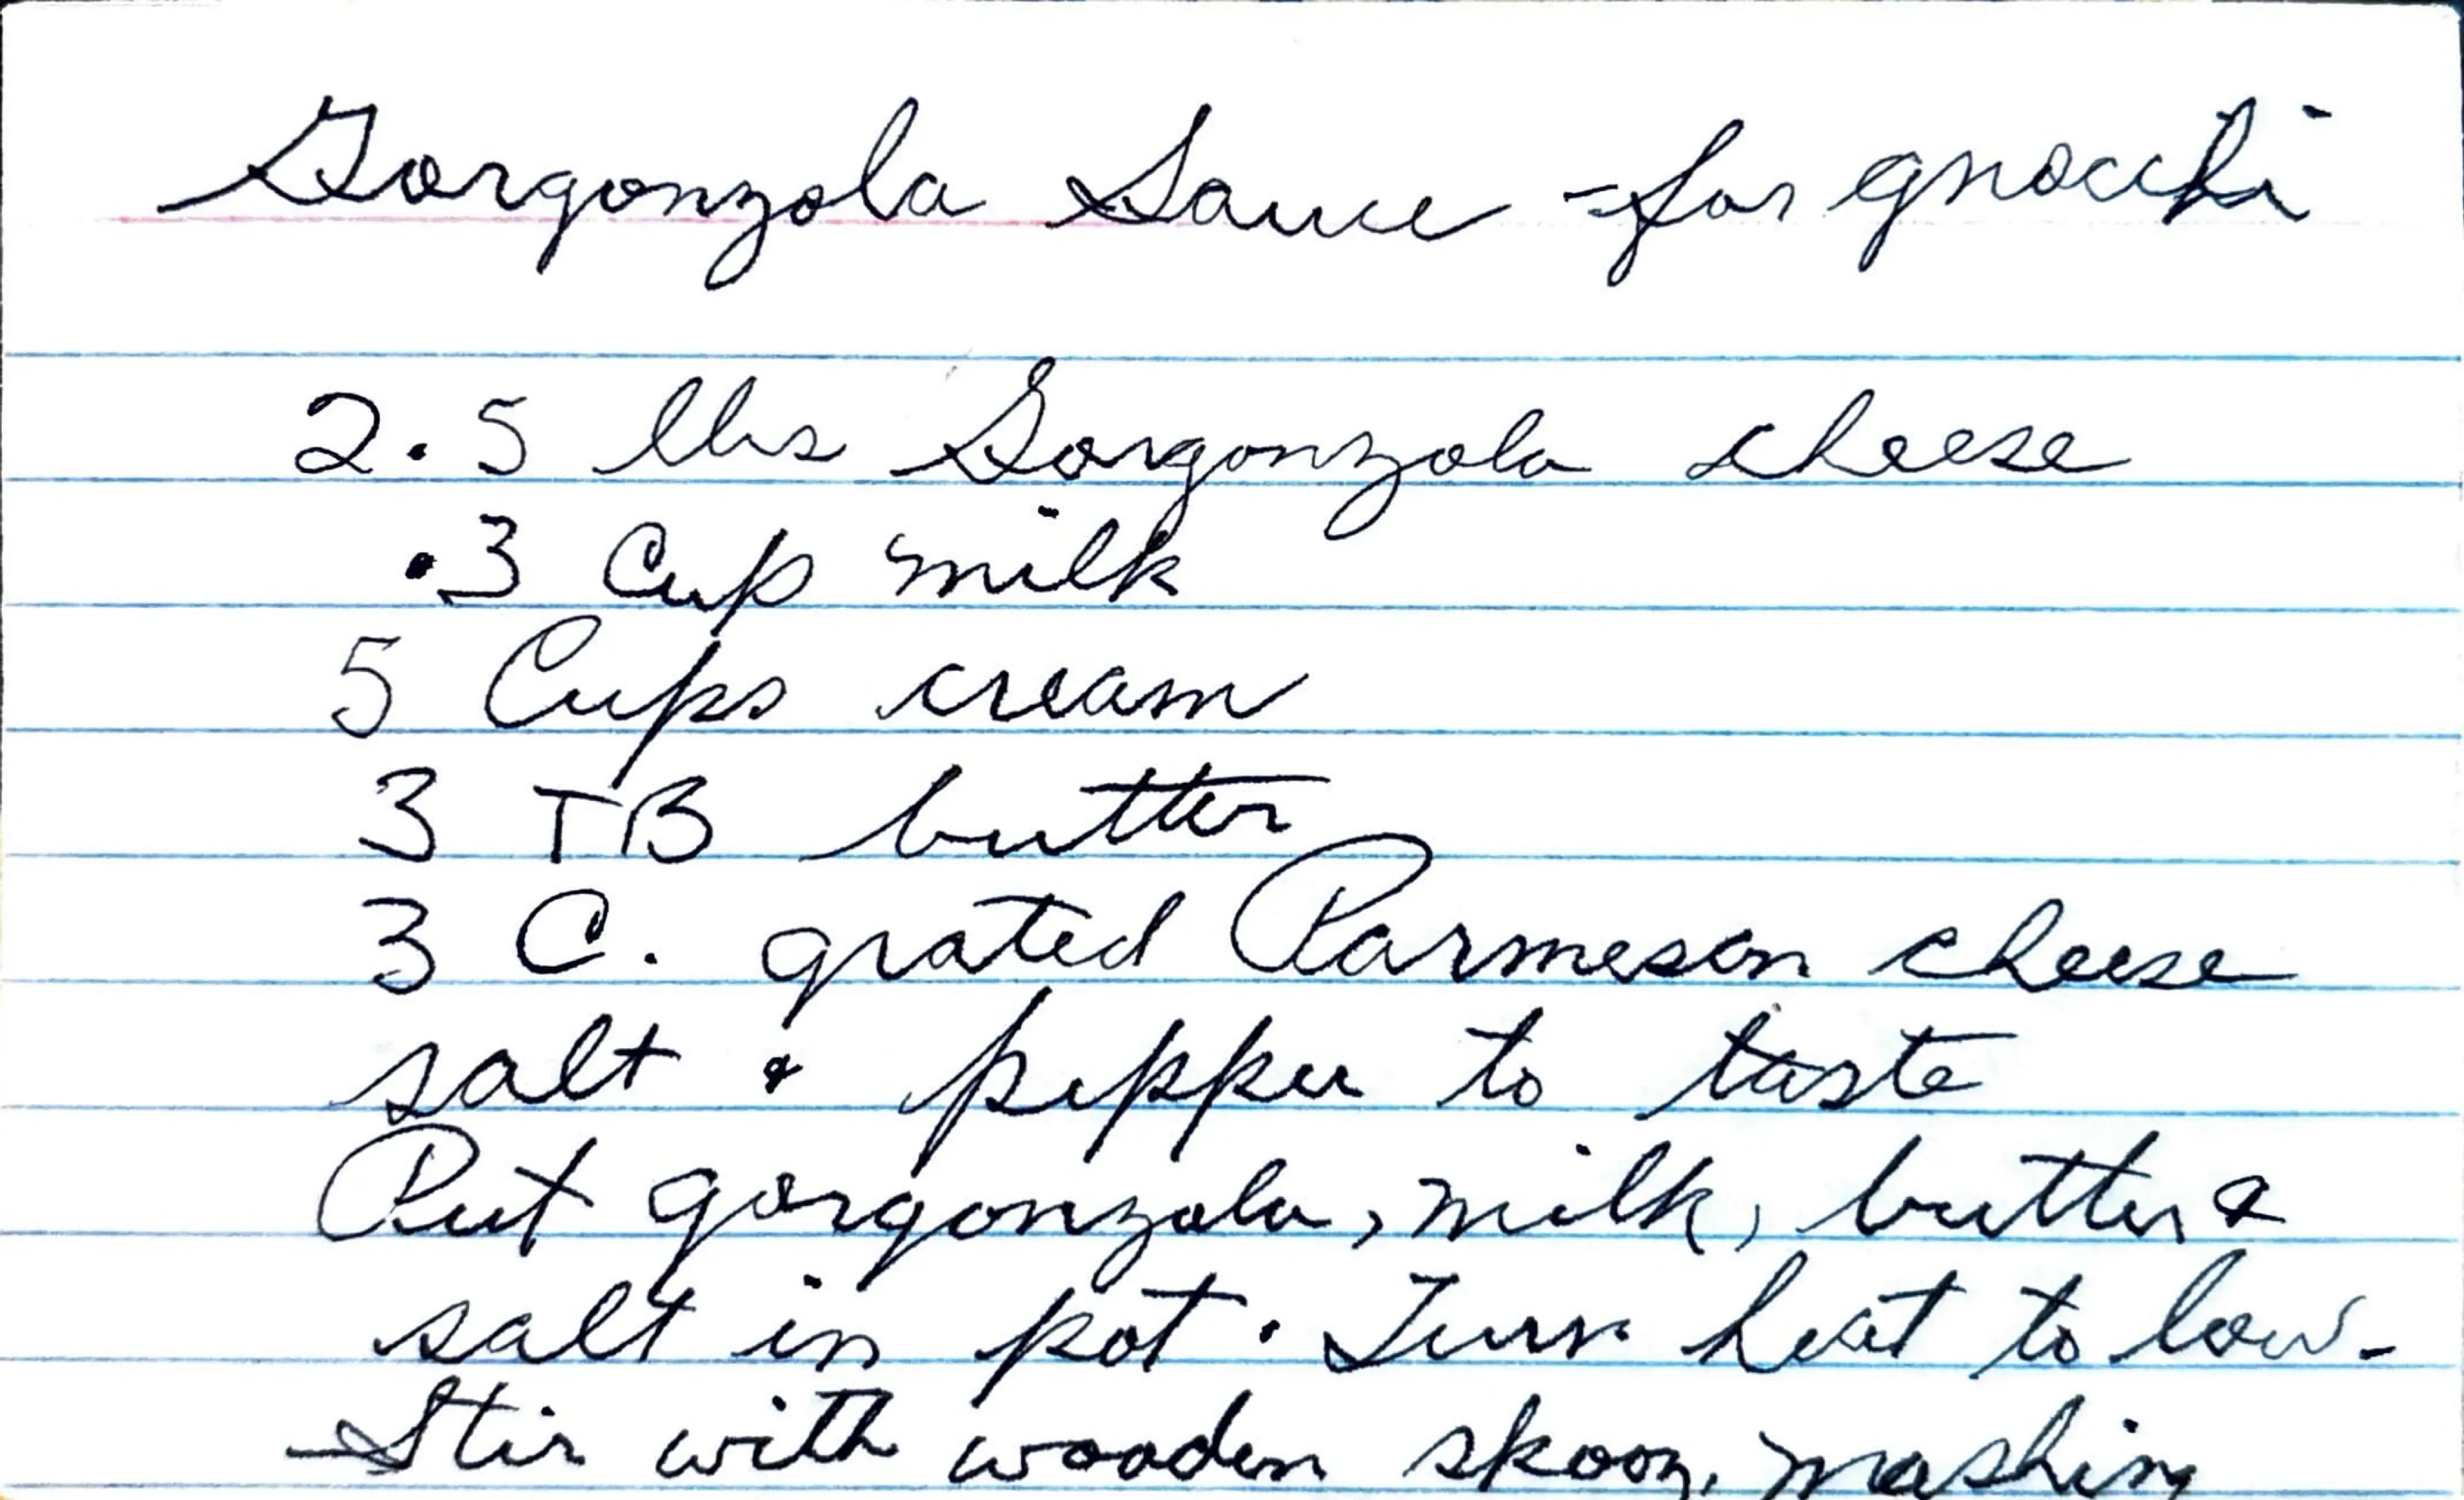 Gorgonzola Sauce - for gnocchi
2.5 lbs Gorgonzola cheese
.3 Cup milk
5 Cups cream
3 TB butter
3 C. grated Parmesan cheese
salt & pepper to taste
Put gorgonzola, milk, butter &
salt in pot. Turn heat to low -
Stir with wooden spoon, mashing